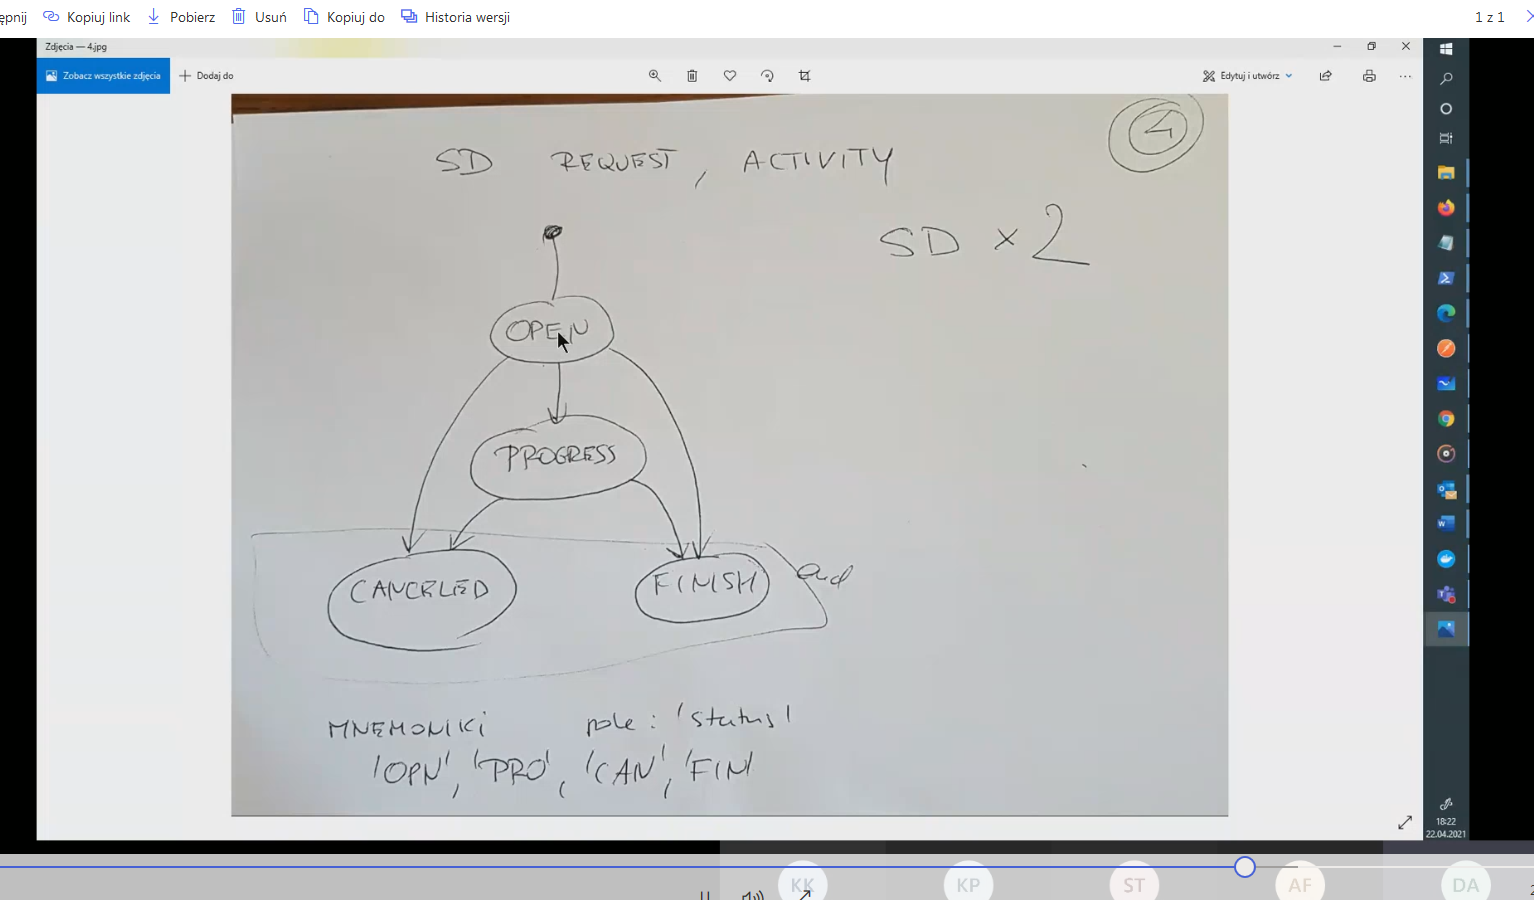 ępnij Kopiuj link Pobierz Usuń Kopiuj do Historia wersji 1 z 1
Zdjęcia — 4.jpg
Zobacz wszystkie zdjęcia Dodaj do Edytuj i utwórz
4
SD REQUEST, ACTIVITY
SD × 2
OPEN
PROGRESS
CANCELED FINISH
End
MNEMONIKI pole: 'status'
'OPN', 'PRO', 'CAN', 'FIN'
18:22
22.04.2021
KK KP ST AF DA